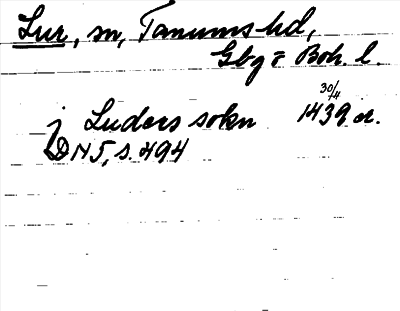 Lur, sn, Tanums hd,
Gbg o Boh. l.
j Luders sokn 30/4 1439 or.
DN 5, s. 494